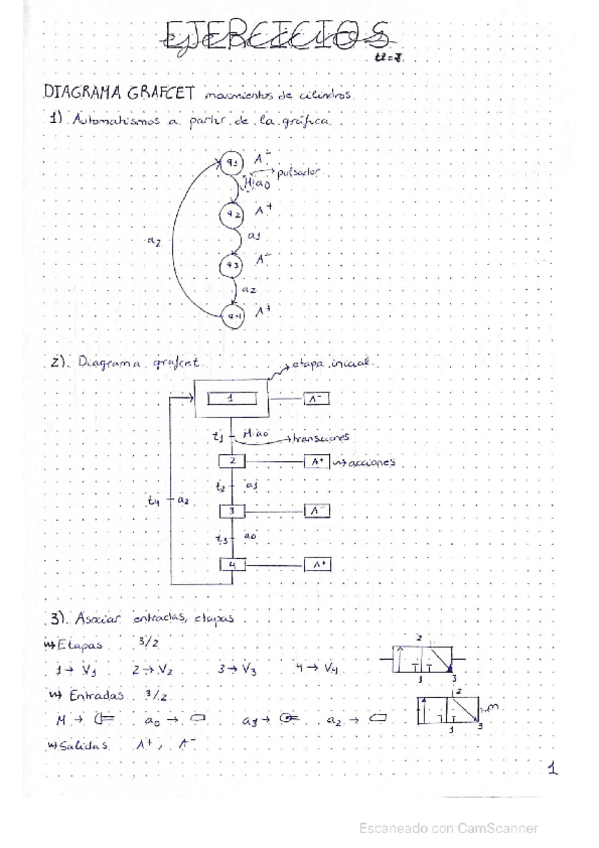 EJERCICIOS
DIAGRAMA GRAFCET movimientos de cilindros.
1) Automatismos a partir de la gráfica.
q1 A-
M·a0 → pulsador
q2 A+
a1
a2
q3 A-
a2
q4 A+
2). Diagrama grafcet.
→ etapa inicial.
1 A-
t1 M·a0 → transiciones
2 A+ → acciones
t2 a1
t4 a2
3 A-
t3 a0
4 A+
3). Asociar entradas, etapas
Etapas 3/2
1→ V1 2→ V2 3→ V3 4→ V4
2
1 3
Entradas 3/2
M → a0 → a1 → a2 →
2
m
1 3
Salidas A+, A-
1
Escaneado con CamScanner